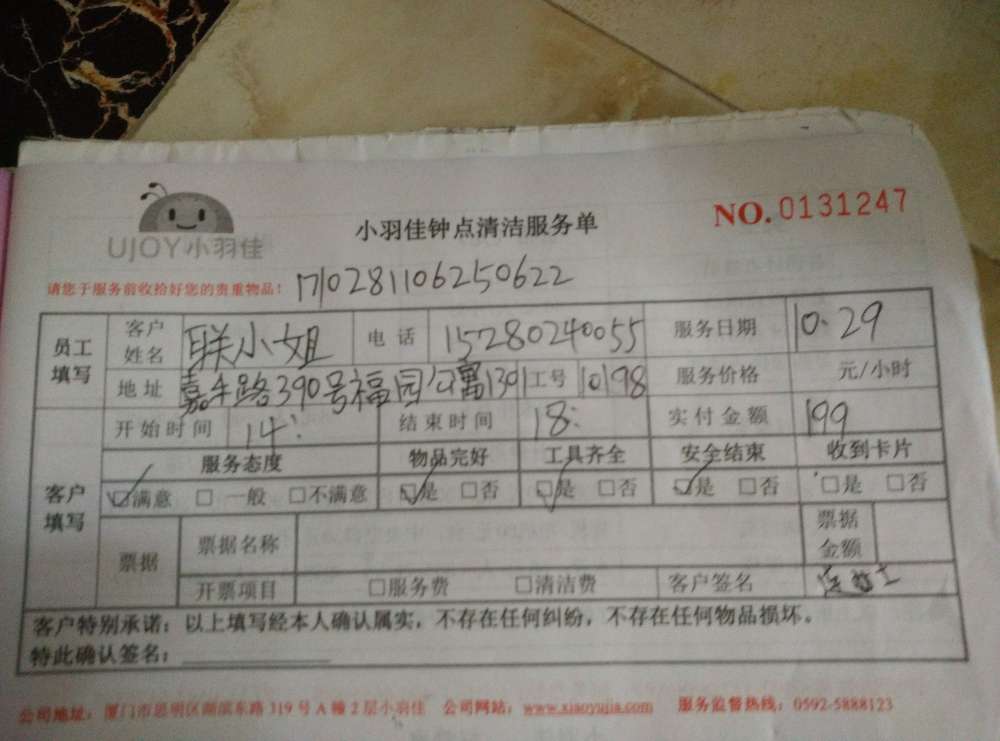 UJOY小羽佳
小羽佳钟点清洁服务单
NO.0131247
请您于服务前收拾好您的贵重物品！
1710281106250622
员工填写 客户姓名 联小姐 电话 15280240055 服务日期 10.29
地址 嘉禾路390号福园公寓1301 工号 10198 服务价格 元/小时
客户填写 开始时间 14: 结束时间 18: 实付金额 199
服务态度 物品完好 工具齐全 安全结束 收到卡片
☑满意 □一般 □不满意 ☑是 □否 ☑是 □否 ☑是 □否 □是 □否
票据 票据名称 票据金额
开票项目 □服务费 □清洁费 客户签名
客户特别承诺：以上填写经本人确认属实，不存在任何纠纷，不存在任何物品损坏。
特此确认签名：
公司地址：厦门市思明区湖滨东路319号A幢2层小羽佳 公司网站：www.xiaoyujia.com 服务监督热线：0592-5888123